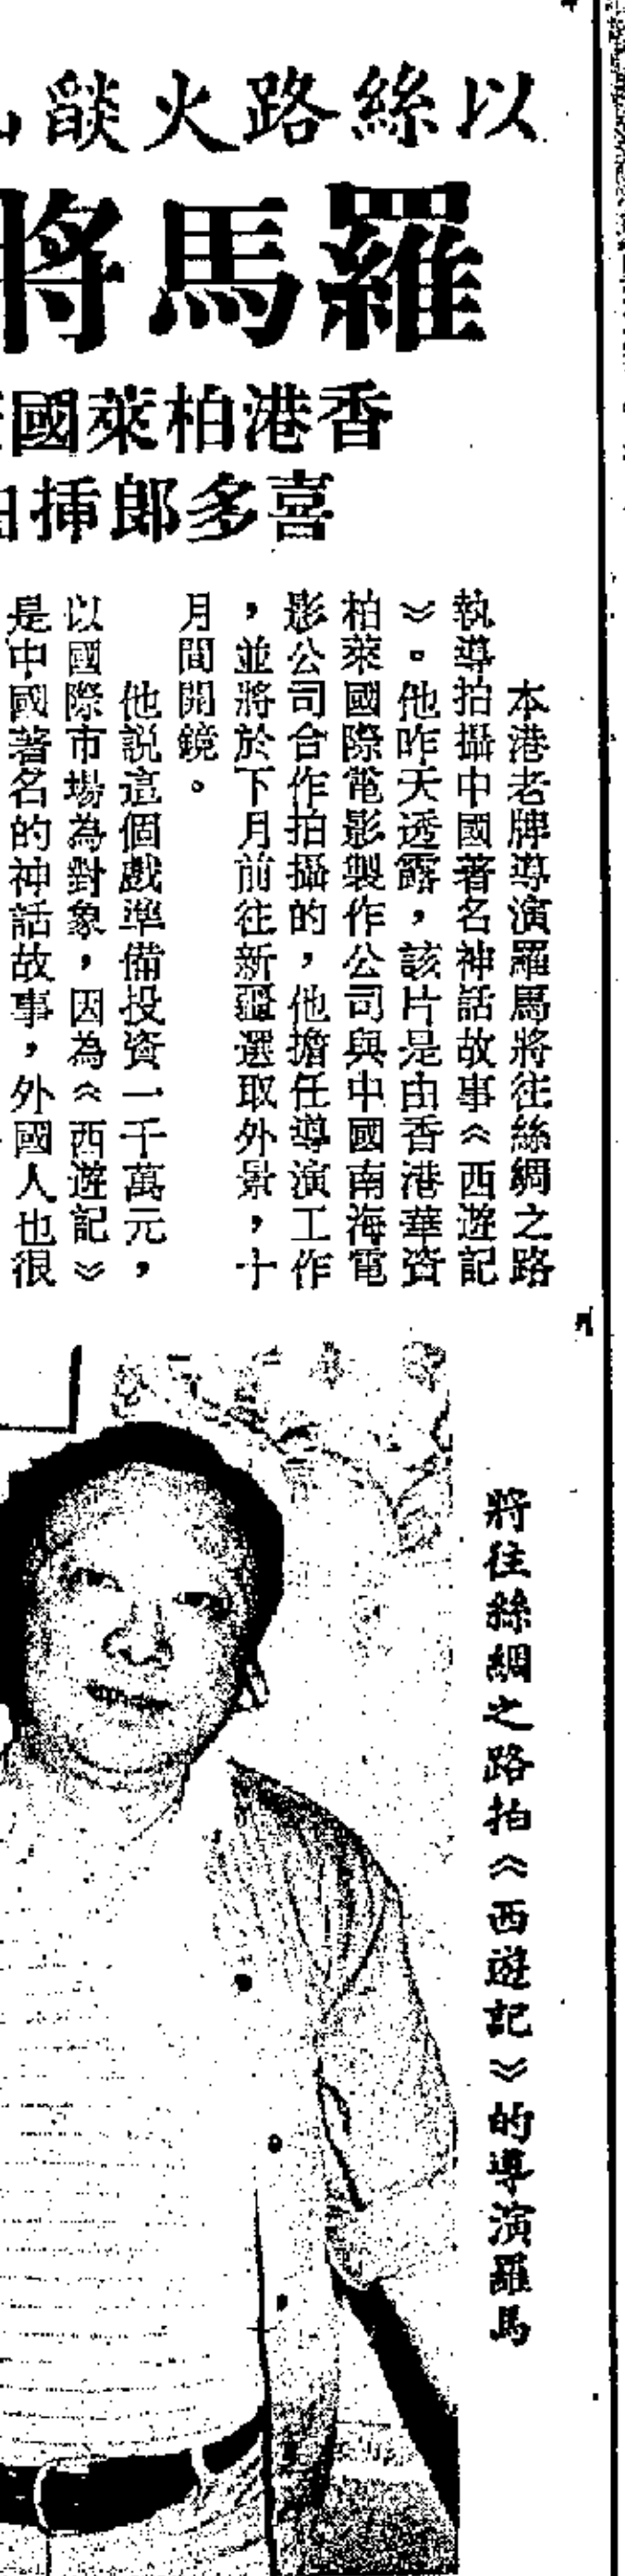 以絲路火燄
羅馬將
香港柏萊國
喜多郎揷
本港老牌導演羅馬將往絲綢之路
執導拍攝中國著名神話故事《西遊記
》。他昨天透露，該片是由香港華資
柏萊國際電影製作公司與中國南海電
影公司合作拍攝的，他擔任導演工作
，並將於下月前往新疆選取外景，十
月間開鏡。
他說這個戲準備投資一千萬元，
以國際市場為對象，因為《西遊記》
是中國著名的神話故事，外國人也很
將往絲綢之路拍《西遊記》的導演羅馬